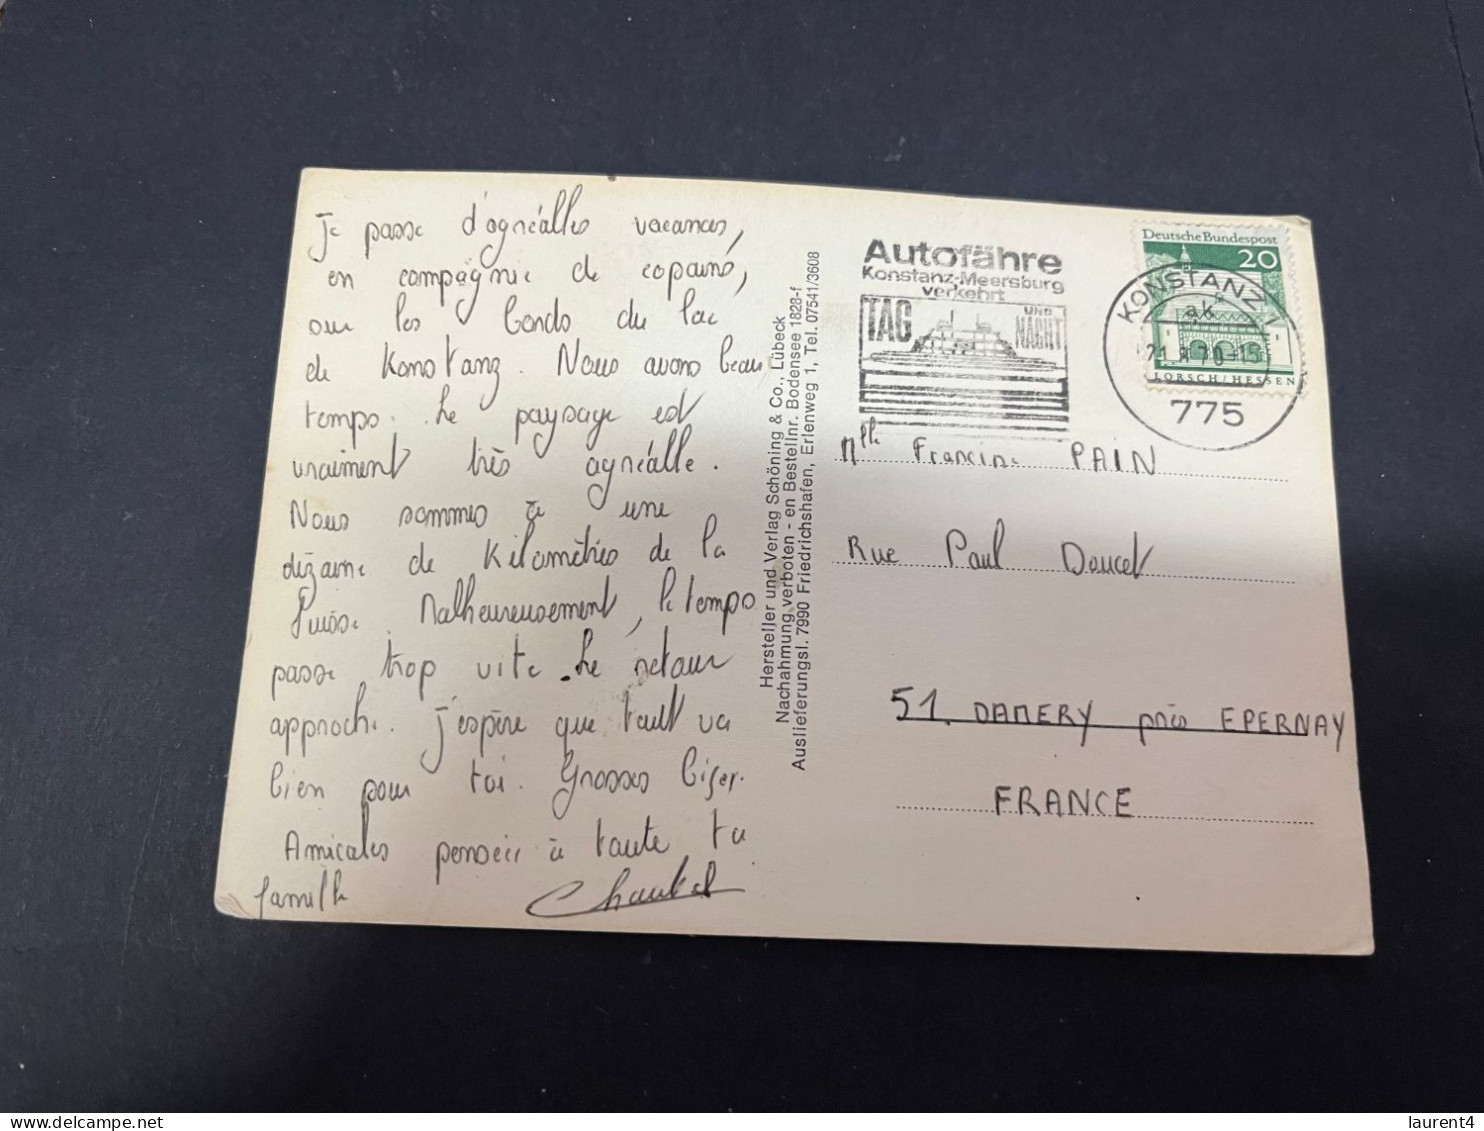 Je passe d'agréalles vacances,
en compagnie de copains,
sur les bords du lac
de Konstanz. Nous avons beau
temps. Le paysage est
vraiment très agréalle.
Nous sommes à une
dizaine de kilomètres de la
Suisse. Malheureusement, le temps
passe trop vite. Le retour
approche. J'espère que tout va
bien pour toi. Grosses biser.
Amicales pensées à toute ta
famille
Chantal
Hersteller und Verlag Schöning & Co., Lübeck
Nachahmung verboten - en Bestellnr. Bodensee 1828-f
Auslieferungsl. 7990 Friedrichshafen, Erlenweg 1, Tel. 07541/3608
Autofähre
Konstanz-Meersburg
verkehrt
TAG UND NACHT
Deutsche Bundespost
20
LORSCH/HESSEN
KONSTANZ 1
ak
-15
775
Mlle Francine PAIN
Rue Paul Doucet
51. DAMERY près EPERNAY
FRANCE
laurent4
delcampe.net